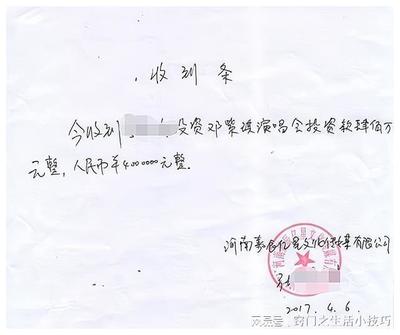 收到条
今收到 投资邓紫棋演唱会投资款肆佰万
元整,人民币¥4000000元整.
河南 亿星文化传媒有限公司
2017.4.6.
搜狐号@窍门之生活小技巧